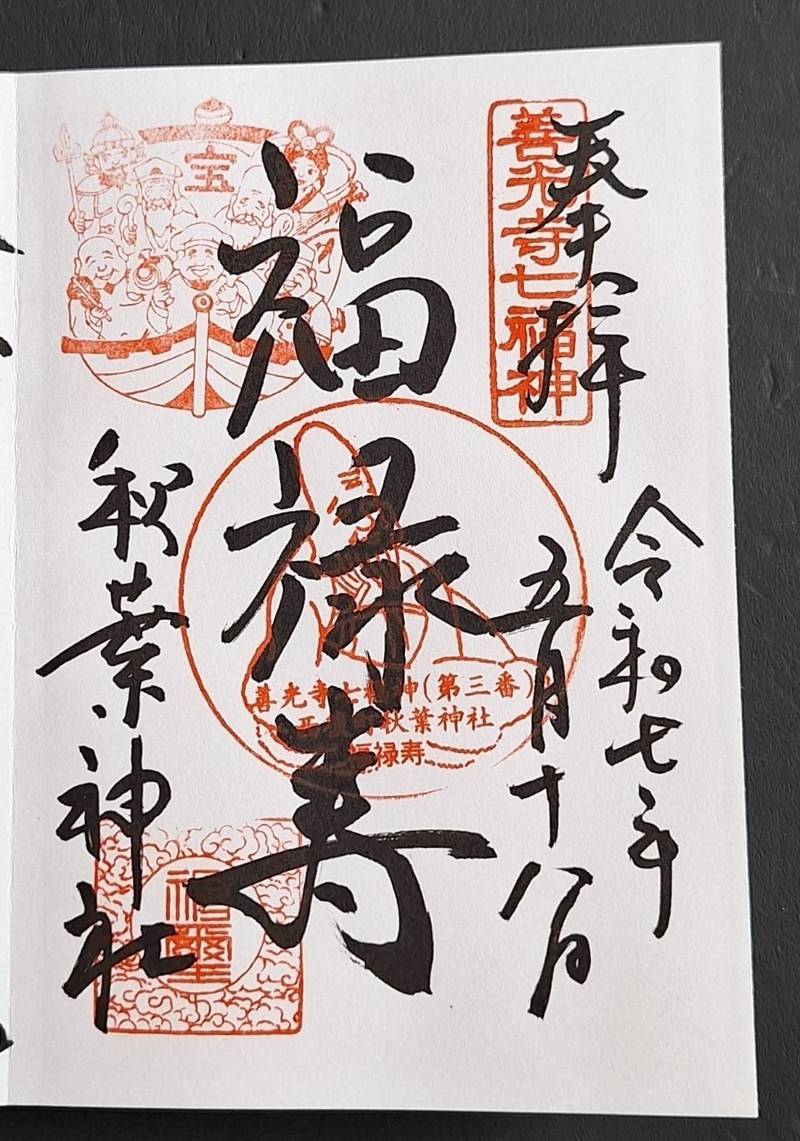 奉拝
善光寺七福神
令和七年
五月十八日
宝
福禄寿
善光寺七福神(第三番)
秋葉神社
福禄寿
秋葉神社